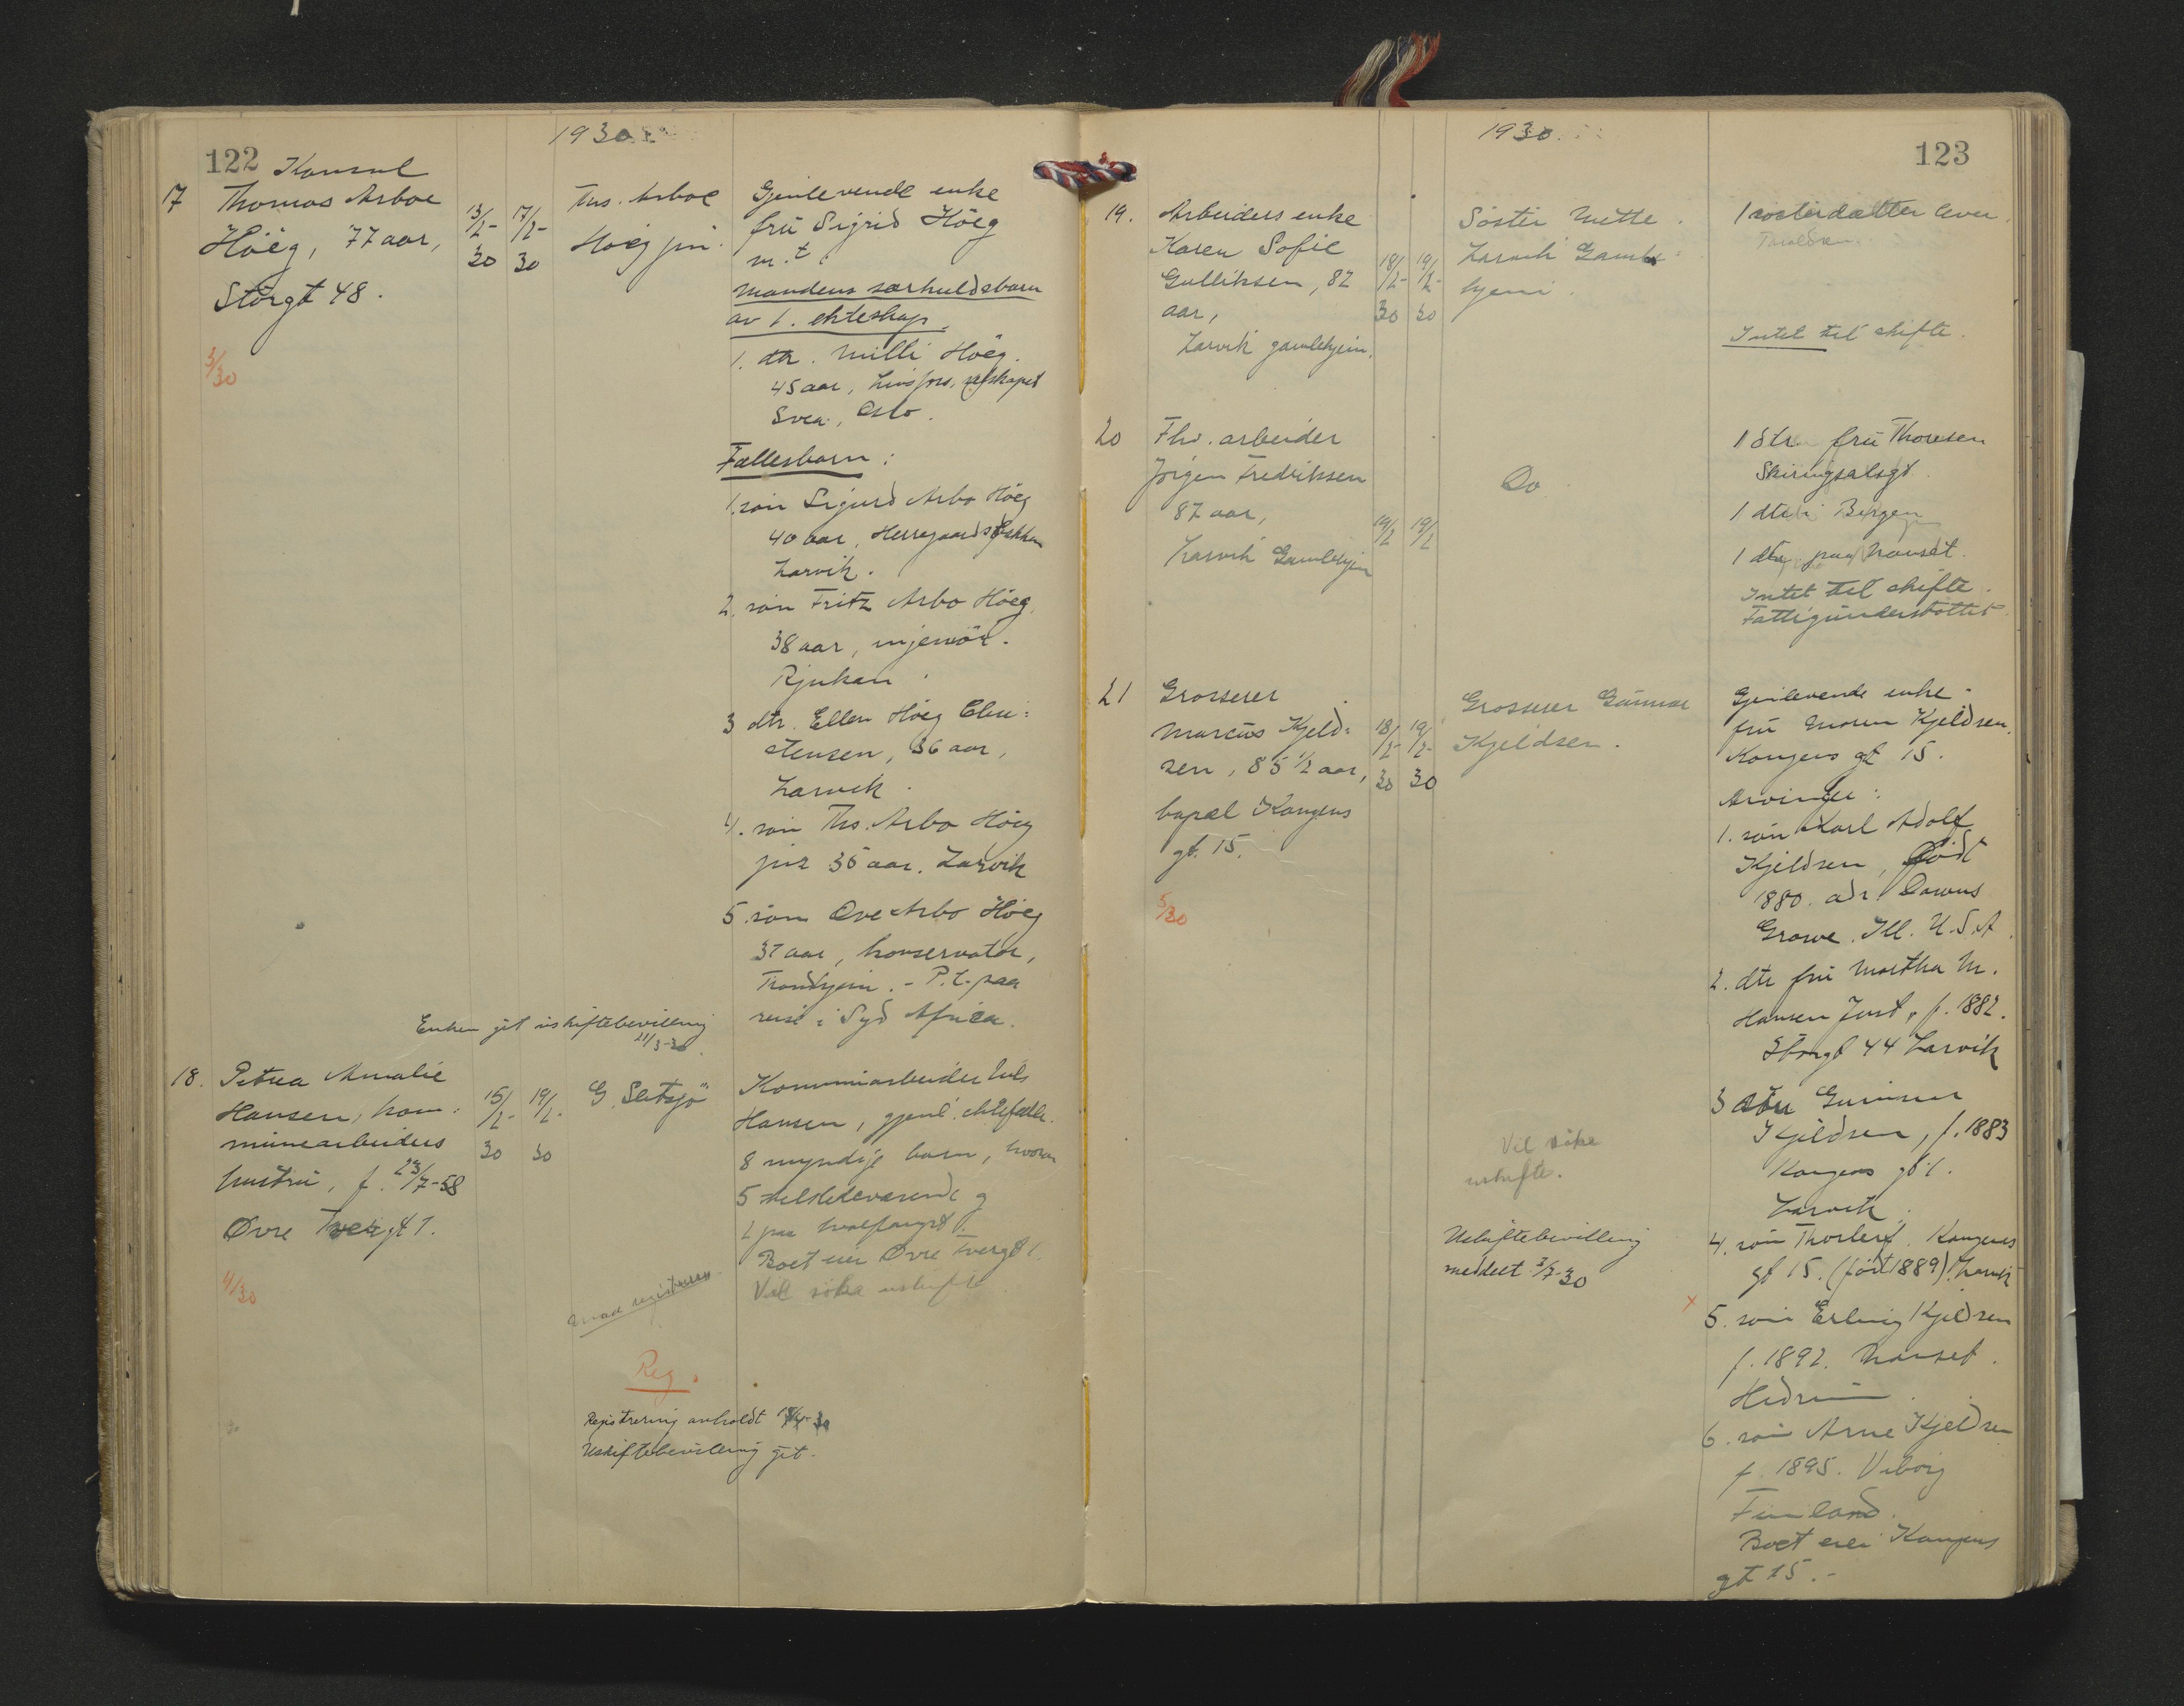 122
1930
17
Konsul
Thomas Arboe
Höeg, 77 aar,
Storgt 48.
3/30
13/2-30
17/2-30
Ths. Arboe
Höeg jnr.
Gjenlevende enke
frü Sigrid Höeg
m.t.
Mandens særkuldsbarn
av 1. ekteskap.
1. dtr. Milli Höeg.
45 aar, Livsfors. selskapet
Svea, Oslo.
Fællesbarn:
1. søn Sigurd Arbo Höeg
40 aar, Herregaardsbakken
Larvik.
2. søn Fritz Arbo Höeg.
38 aar, injeniör.
Rjukan
3 dtr. Ellen Höeg Chri=
stensen, 36 aar,
Larvik.
4. søn Ths. Arbo Höeg
jnr 35 aar. Larvik
5. søn Ove Arbo Höeg
31 aar, konservator,
Trondhjem. - P.t. paa
reise i Syd Africa.
Enken git uskiftebevilling
21/3-30.
18.
Petrea Amalie
Hansen, kom=
münearbeiders
hustrü, f. 23/7-58
Øvre Tvergt 1.
4/30
15/2-30
19/2-30
G. Sletsjö
Kommünearbeider
Hansen, gjenl. ektefælle.
8 myndige barn, hvorav
5 tilstedeværende og
2 paa hvalfangst.
Boet eier Øvre Tvergt 1.
Vil söke uskifte
maa registreres
Reg.
Registrering avholdt 15/4-30
Uskiftebevilling git.
1930.
123
19.
Arbeiders enke
Karen Sofie
Gulliksen, 82
aar,
Larvik gamlehjem.
18/2-30
19/2-30
Söster Mette
Larvik Gamle=
hjem.
1 sösterdatter lever.
Intet til skifte.
20
Fhv. arbeider
Jörgen Fredriksen
87 aar,
Larvik Gamlehjem
19/2
19/2
Do
1 dtr. frü Thoresen
Skiringsalsgt.
1 dtr. i Bergen
1 dtr. paa Nanset.
Intet til skifte.
Fattigünderstöttet
21
Grosserer
Marcüs Kjeld=
sen, 85 1/2 aar,
bopæl Kongens
gt. 15.
5/30
18/2-30
19/2-30
Grosserer Günnar
Kjeldsen.
Vil söke
uskifte.
Uskiftebevilling
meddelt 3/7-30
Gjenlevende enke
frü Maren Kjeldsen,
Kongens gt 15.
Arvinger:
1. søn Karl Adolf
Kjeldsen, född
1880. adr. Downs
Growe. Ill. U.S.A.
2. dtr frü Martha M.
Hansen Just, f. 1882.
Storgt 44 Larvik
3 søn Gunnar
Kjeldsen, f. 1883
Kongens gt 1.
Larvik.
4. søn Thorleif. Kongens
gt 15. (född 1889). Larvik
x
5. søn Erling Kjeldsen
f. 1892. Nanset.
Hedrum.
6. søn Arne Kjeldsen
f. 1895. Viborg
Finland.
Boet eier Kongens
gt 15.-